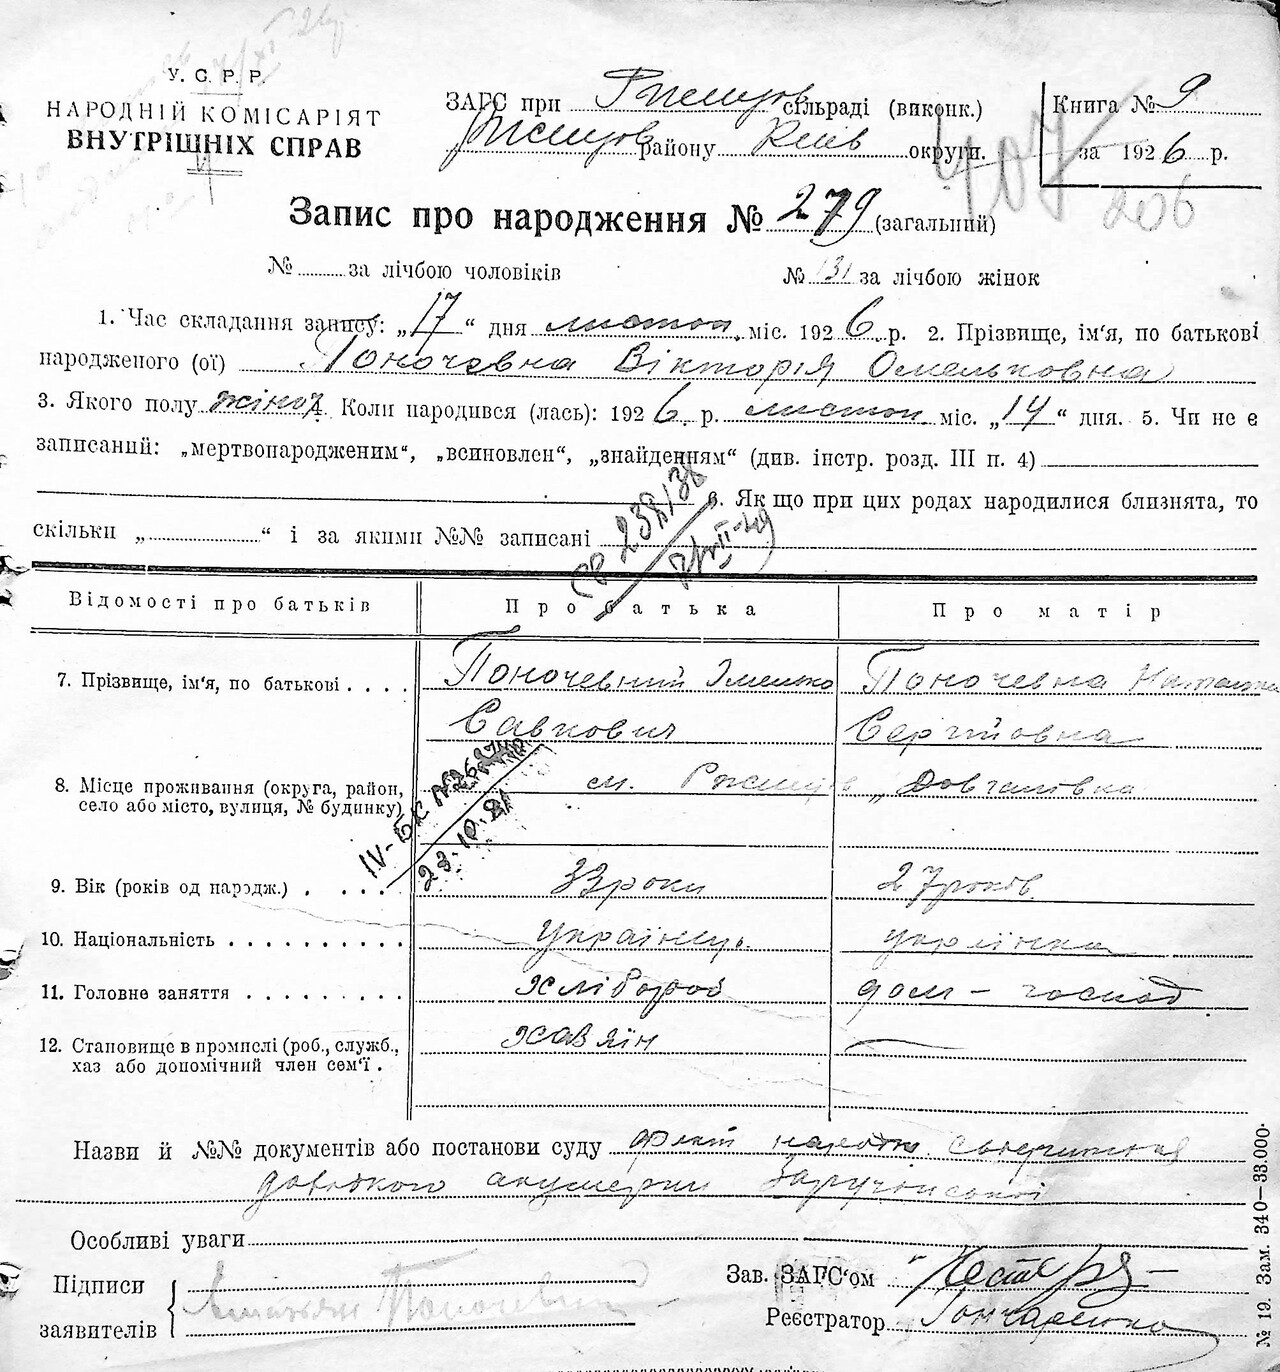 У. С. Р. Р.
НАРОДНІЙ КОМІСАРІЯТ
ВНУТРІШНІХ СПРАВ
ЗАГС при Ржищов сільраді (виконк.)
Ржищов району Київ округи.
Книга № 9
за 1926 р.
407
206
Запис про народження № 279 (загальний)
№ за лічбою чоловіків
№ 131 за лічбою жінок
1. Час складання запису: „17“ дня листоп. міс. 1926 р. 2. Прізвище, ім'я, по батькові
народженого (ої) Поночевна Вікторія Омельковна
3. Якого полу жіноч. 4. Коли народився (лась): 1926 р. листоп. міс. „14“ дня. 5. Чи не є
записаний: „мертвонародженим“, „всиновлен“, „знайденням“ (див. інстр. розд. III п. 4)
6. Як що при цих родах народилися близнята, то
скільки „ “ і за якими №№ записані
Відомості про батьків
Про батька
Про матір
7. Прізвище, ім'я, по батькові
Поночевний Омелько
Савкович
Поночевна Наталка
Сергійовна
8. Місце проживання (округа, район,
село або місто, вулиця, № будинку)
м. Ржищів „Довгалівка
IV-БС №
23.10.81
9. Вік (років од народж.)
33 роки
27 років
10. Національність
Українець
українка
11. Головне заняття
хлібороб
дом-господ
12. Становище в промислі (роб., служб.,
хаз або допомічний член сем'ї
хазяїн
Назви й №№ документів або постанови суду факт народж. стверджен
довідкою акушерки
Особливі уваги
Підписи
заявителів
Поночевний
Зав. ЗАГС'ом
Реєстратор Гончаренко
№ 19. Зам. 340—33.000.